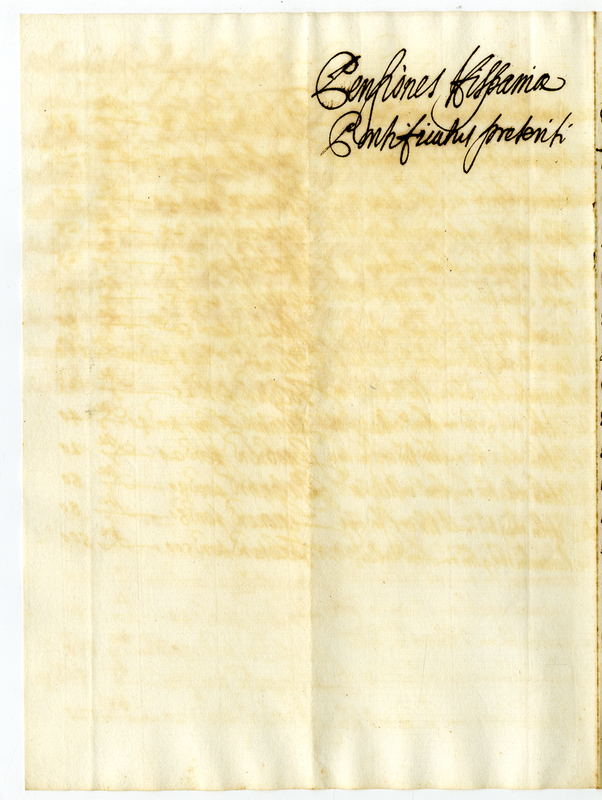 Pensiones Hispaniæ
Pontificatus preteriti